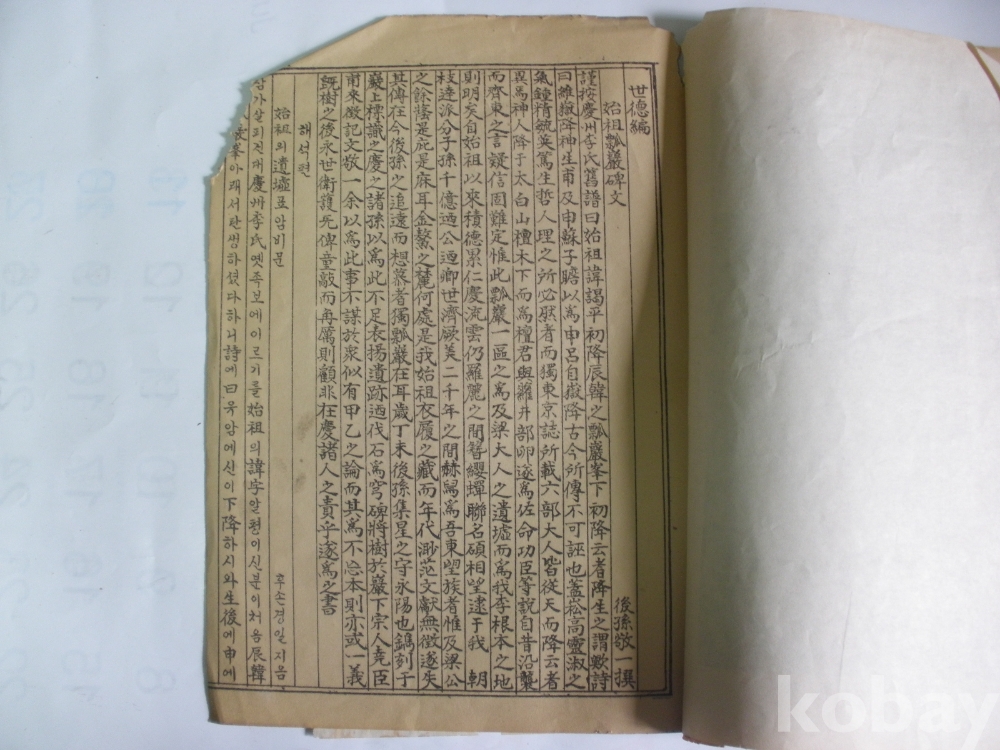 世德編
始祖瓢巖碑文
後孫敬一撰
謹按慶州李氏舊譜曰始祖諱謁平初降辰韓之瓢巖峯下初降云者降生之謂歟詩
曰維嶽降神生甫及申蘇子瞻以爲申呂自嶽降古今所傳不可誣也蓋崧高靈淑之
氣鍾情毓英篤生哲人理之所必厭者而獨東京誌所載六部大人皆從天而降云者
異焉神人降于太白山檀木下而爲檀君與蘿井部卵遂爲佐命功臣等說自昔沿襲
而齊東之言疑信固難定惟此瓢巖一區之爲及梁大人之遺墟而爲我李根本之地
則明矣自始祖以來積德累仁慶流雲仍羅麗之間簪纓蟬聯名碩相望逮于我 朝
枝達派分子孫千億迺公迺卿世濟厥美二千年之間赫舃爲吾東望族者惟及梁公
之餘蔭是庇是庥耳金鰲之麓何處是我始祖衣履之藏而年代渺茫文獻無徵遂失
其傳在今後孫之追遠而想慕者獨瓢巖在耳歲丁未後孫集星之守永陽也鐫刻于
巖上標識之慶之諸孫以爲此不足表揚遺跡迺伐石爲穹碑將樹於巖下宗人竟臣
甫來徵記文敬一余以爲此事不謀於衆似有甲乙之論而其爲不忘本則亦或一義
旣樹之後永世衛護旡俾童敲而冉厲則顧非在慶諸人之責乎遂爲之書
해석편
始祖의遺墟표암비문
후손경일지음
삼가살피건대慶州李氏옛족보에이르기를始祖의諱字알평이신분이처음辰韓
아래서탄생하셨다하니詩에曰묵암에신이下降하시와生後에申에